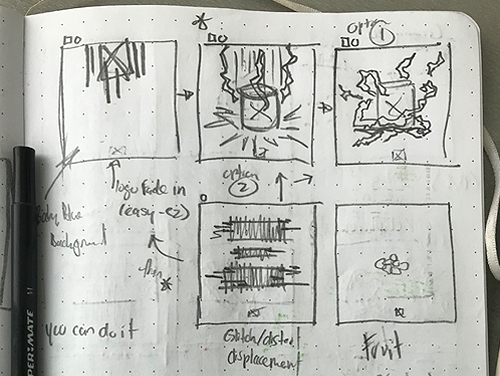 option 1
option
2
logo fade in
(easy-ez)
Baby Blue
Background
you can do it
Glitch/distort
displacement
Fruit
PER·MATE